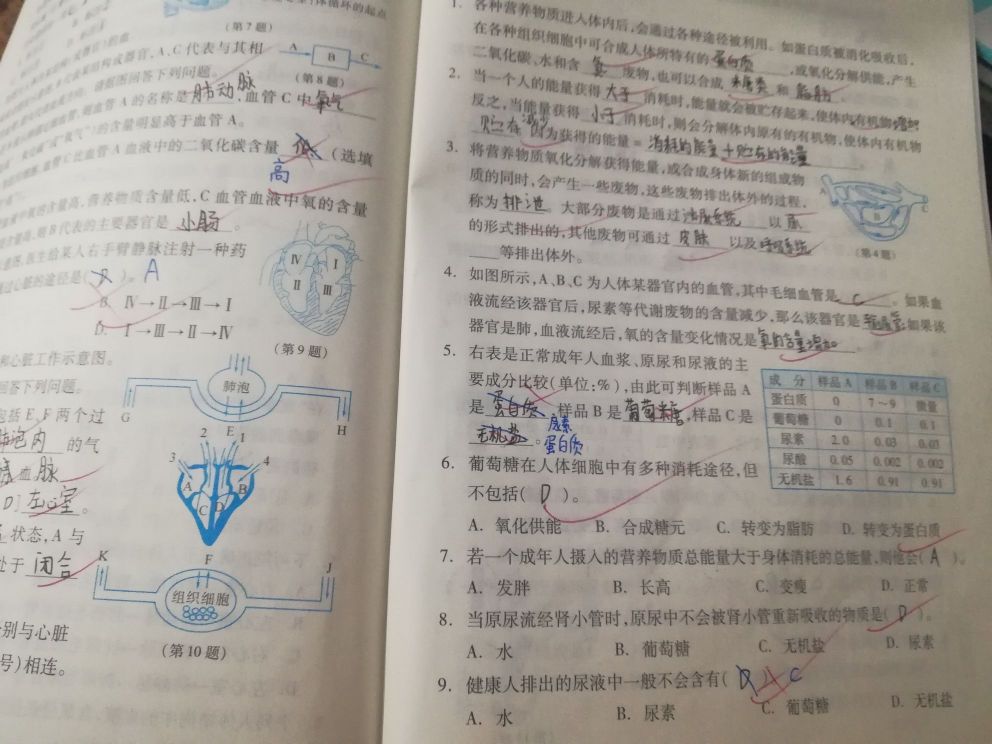 体循环的起点
(第7题)
A、C代表与其相
A B C
(第8题)
请据图回答下列问题。
血管A的名称是肺动脉,血管C中氧气
的含量明显高于血管A。
血管A血液中的二氧化碳含量低(选填
高
营养物质含量低,C血管血液中氧的含量
B代表的主要器官是小肠。
医生给某人右手臂静脉注射一种药
心脏的途径是( )。A
B. Ⅳ→Ⅱ→Ⅲ→Ⅰ
D. Ⅰ→Ⅲ→Ⅱ→Ⅳ
Ⅳ Ⅰ
Ⅱ Ⅲ
(第9题)
和心脏工作示意图。
回答下列问题。
包括E、F两个过
肺泡内的气
脉
D]左心室。
状态,A与
处于闭合
别与心脏
号)相连。
肺泡
G H
2 E 1
3 4
A B
C D
F
K J
组织细胞
(第10题)
1. 各种营养物质进人体内后,会通过各种途径被利用。如蛋白质被消化吸收后,
在各种组织细胞中可合成人体所特有的蛋白质,或氧化分解供能,产生
二氧化碳、水和含氮废物,也可以合成糖类和脂肪。
2. 当一个人的能量获得大于消耗时,能量就会被贮存起来,使体内有机物增加
反之,当能量获得小于消耗时,则会分解体内原有的有机物,使体内有机物
减少因为获得的能量=消耗的能量+贮存的能量
贮存
3. 将营养物质氧化分解获得能量,或合成身体新的组成物
质的同时,会产生一些废物,这些废物排出体外的过程,
称为排泄。大部分废物是通过泌尿系统以尿
的形式排出的,其他废物可通过皮肤以及呼吸系统
等排出体外。
A B C
(第4题)
4. 如图所示,A、B、C为人体某器官内的血管,其中毛细血管是C。如果血
液流经该器官后,尿素等代谢废物的含量减少,那么该器官是肾脏;如果该
器官是肺,血液流经后,氧的含量变化情况是氧的含量增加。
5. 右表是正常成年人血浆、原尿和尿液的主
要成分比较(单位:%),由此可判断样品A
是蛋白质,样品B是葡萄糖,样品C是
尿素
无机盐。蛋白质
成 分 样品A 样品B 样品C
蛋白质 0 7~9 微量
葡萄糖 0 0.1 0.1
尿素 2.0 0.03 0.03
尿酸 0.05 0.002 0.002
无机盐 1.6 0.91 0.91
6. 葡萄糖在人体细胞中有多种消耗途径,但
不包括( D )。
A. 氧化供能 B. 合成糖元 C. 转变为脂肪 D. 转变为蛋白质
7. 若一个成年人摄入的营养物质总能量大于身体消耗的总能量,则他会( A )。
A. 发胖 B. 长高 C. 变瘦 D. 正常
8. 当原尿流经肾小管时,原尿中不会被肾小管重新吸收的物质是( D )。
A. 水 B. 葡萄糖 C. 无机盐 D. 尿素
9. 健康人排出的尿液中一般不会含有( D ) C
A. 水 B. 尿素 C. 葡萄糖 D. 无机盐